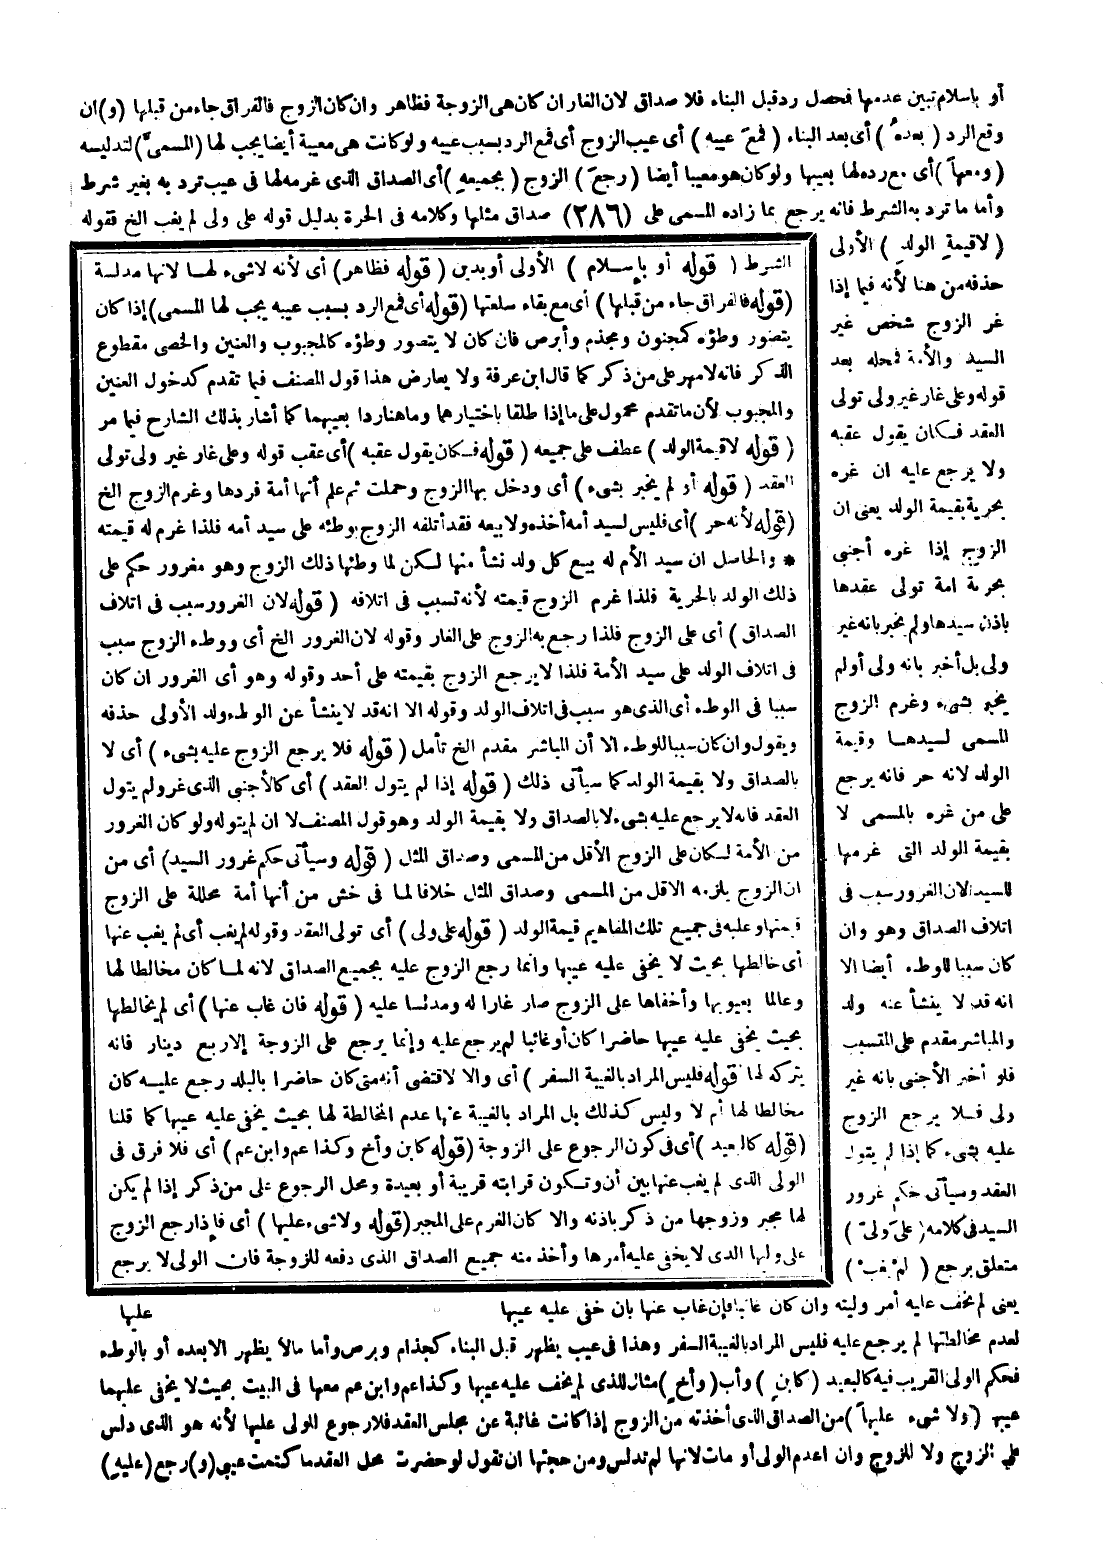 أو باسلام تبين عدمها فحصل رد قبل البناء فلا صداق لان الغار ان كان هى الزوجة فظاهر وان كان الزوج فالفراق جاء من قبلها (و) ان
وقع الرد (بعده) أى بعد البناء (فمع عيبه) أى عيب الزوج أى فمع الرد بسبب عيبه ولو كانت هى معيبة أيضا يجب لها (المسمى) لتدليسه
(ومعها) أى مع رده لها بعيبها ولو كان هو معيبا أيضا (رجع) الزوج (بجميعه) أى الصداق الذى غرمه لها فى عيب ترد به بغير شرط
وأما ما ترد به الشرط فانه يرجع بما زاده المسمى على (٢٨٦) صداق مثلها وكلامه فى الحرة بدليل قوله على ولى لم يغب الخ فقوله
(لا قيمة الولد) الأولى
حذفه من هنا لأنه فيما إذا
غر الزوج شخص غير
السيد والأمة فمحله بعد
قوله وعلى غار غير ولى تولى
العقد فكان يقول عقبه
ولا يرجع عليه ان غره
بحرية بقيمة الولد يعنى ان
الزوج إذا غره أجنبى
بحرية امة تولى عقدها
باذن سيدها ولم يخبر بانه غير
ولى بل أخبر بانه ولى أو لم
يخبر بشىء وغرم الزوج
المسمى لسيدها وقيمة
الولد لانه حر فانه يرجع
على من غره بالمسمى لا
بقيمة الولد التى غرمها
للسيد لان الغرور سبب فى
اتلاف الصداق وهو وان
كان سببا للوطء أيضا الا
انه قد لا ينشأ عنه ولد
والمباشر مقدم على المتسبب
فلو أخبر الأجنبى بانه غير
ولى فلا يرجع الزوج
عليه بشىء كما إذا لم يتول
العقد وسيأتى حكم غرور
السيد فى كلامه (على ولى)
متعلق برجع (لم يغب)
يعنى لم يخف عليه أمر وليته وان كان غائبا فإن غاب عنها بان خفى عليه عيبها
لعدم مخالطتها لم يرجع عليه فليس المراد بالغيبة السفر وهذا فى عيب يظهر قبل البناء كجذام وبرص وأما ما لا يظهر الا بعده أو بالوطء
فحكم الولى القريب فيه كالبعيد (كابن) وأب (وأخ) مثال للذى لم يخف عليه عيبها وكذا عم وابن عم معها فى البيت بحيث لا يخفى عليهما
عيبها (ولا شىء عليها) من الصداق الذى أخذته من الزوج إذا كانت غائبة عن مجلس العقد فلا رجوع للولى عليها لأنه هو الذى دلس
على الزوج ولا للزوج وان اعدم الولى أو مات لانها لم تدلس ومن حجتها ان تقول لو حضرت محل العقد ما كتمت عيبى (و) رجع (عليه)
الشرط (قوله أو بإسلام) الأولى أو بدين (قوله فظاهر) أى لأنه لا شىء لها لانها مدلسة
(قوله فالفراق جاء من قبلها) أى مع بقاء سلعتها (قوله أى فمع الرد بسبب عيبه يجب لها المسمى) إذا كان
يتصور وطؤه كمجنون ومجذم وأبرص فان كان لا يتصور وطؤه كالمجبوب والعنين والخصى مقطوع
الذكر فانه لا مهر على من ذكر كما قال ابن عرفة ولا يعارض هذا قول المصنف فيما تقدم كدخول العنين
والمجبوب لأن ما تقدم محمول على ما إذا طلقا باختيارهما وما هنا ردا بعيبهما كما أشار بذلك الشارح فيما مر
(قوله لا قيمة الولد) عطف على جميعه (قوله فكان يقول عقبه) أى عقب قوله وعلى غار غير ولى تولى
العقد (قوله أو لم يخبر بشىء) أى ودخل بها الزوج وحملت ثم علم أنها أمة فردها وغرم الزوج الخ
(قوله لأنه حر) أى فليس لسيد أمه أخذه ولا بيعه فقد أتلفه الزوج بوطئه على سيد أمه فلذا غرم له قيمته
* والحاصل ان سيد الأم له بيع كل ولد نشأ منها لكن لما وطئها ذلك الزوج وهو مغرور حكم على
ذلك الولد بالحرية فلذا غرم الزوج قيمته لأنه تسبب فى اتلافه (قوله لان الغرور سبب فى اتلاف
الصداق) أى على الزوج فلذا رجع به الزوج على الغار وقوله لان الغرور الخ أى ووطء الزوج سبب
فى اتلاف الولد على سيد الأمة فلذا لا يرجع الزوج بقيمته على أحد وقوله وهو أى الغرور ان كان
سببا فى الوطء أى الذى هو سبب فى اتلاف الولد وقوله الا انه قد لا ينشأ عن الوطء ولد الأولى حذفه
ويقول وان كان سببا للوطء الا أن المباشر مقدم الخ تأمل (قوله فلا يرجع الزوج عليه بشىء) أى لا
بالصداق ولا بقيمة الولد كما سيأتى ذلك (قوله إذا لم يتول العقد) أى كالأجنبى الذى غر ولم يتول
العقد فانه لا يرجع عليه بشىء لا بالصداق ولا بقيمة الولد وهو قول المصنف لا ان لم يتوله ولو كان الغرور
من الأمة لكان على الزوج الأقل من المسمى وصداق المثل (قوله وسيأتى حكم غرور السيد) أى من
ان الزوج يلزمه الاقل من المسمى وصداق المثل خلافا لما فى خش من أنها أمة محللة على الزوج
قيمتها وعليه فى جميع تلك المفاهيم قيمة الولد (قوله على ولى) أى تولى العقد وقوله لم يغب أى لم يغب عنها
أى خالطها بحيث لا يخفى عليه عيبها وانما رجع الزوج عليه بجميع الصداق لانه لما كان مخالطا لها
وعالما بعيوبها وأخفاها على الزوج صار غارا له ومدلسا عليه (قوله فان غاب عنها) أى لم يخالطها
بحيث يخفى عليه عيبها حاضرا كان أو غائبا لم يرجع عليه وإنما يرجع على الزوجة إلا ربع دينار فانه
يتركه لها (قوله فليس المراد بالغيبة السفر) أى والا لاقتضى أنه متى كان حاضرا بالبلد رجع عليه كان
مخالطا لها أم لا وليس كذلك بل المراد بالغيبة عنها عدم المخالطة لها بحيث يخفى عليه عيبها كما قلنا
(قوله كالبعيد) أى فى كون الرجوع على الزوجة (قوله كابن وأخ وكذا عم وابن عم) أى فلا فرق فى
الولى الذى لم يغب عنها بين أن تكون قرابته قريبة أو بعيدة ومحل الرجوع على من ذكر إذا لم يكن
لها مجبر وزوجها من ذكر باذنه والا كان الغرم على المجبر (قوله ولا شىء عليها) أى فإذا رجع الزوج
على وليها الذى لا يخفى عليه أمرها وأخذ منه جميع الصداق الذى دفعه للزوجة فان الولى لا يرجع
عليها